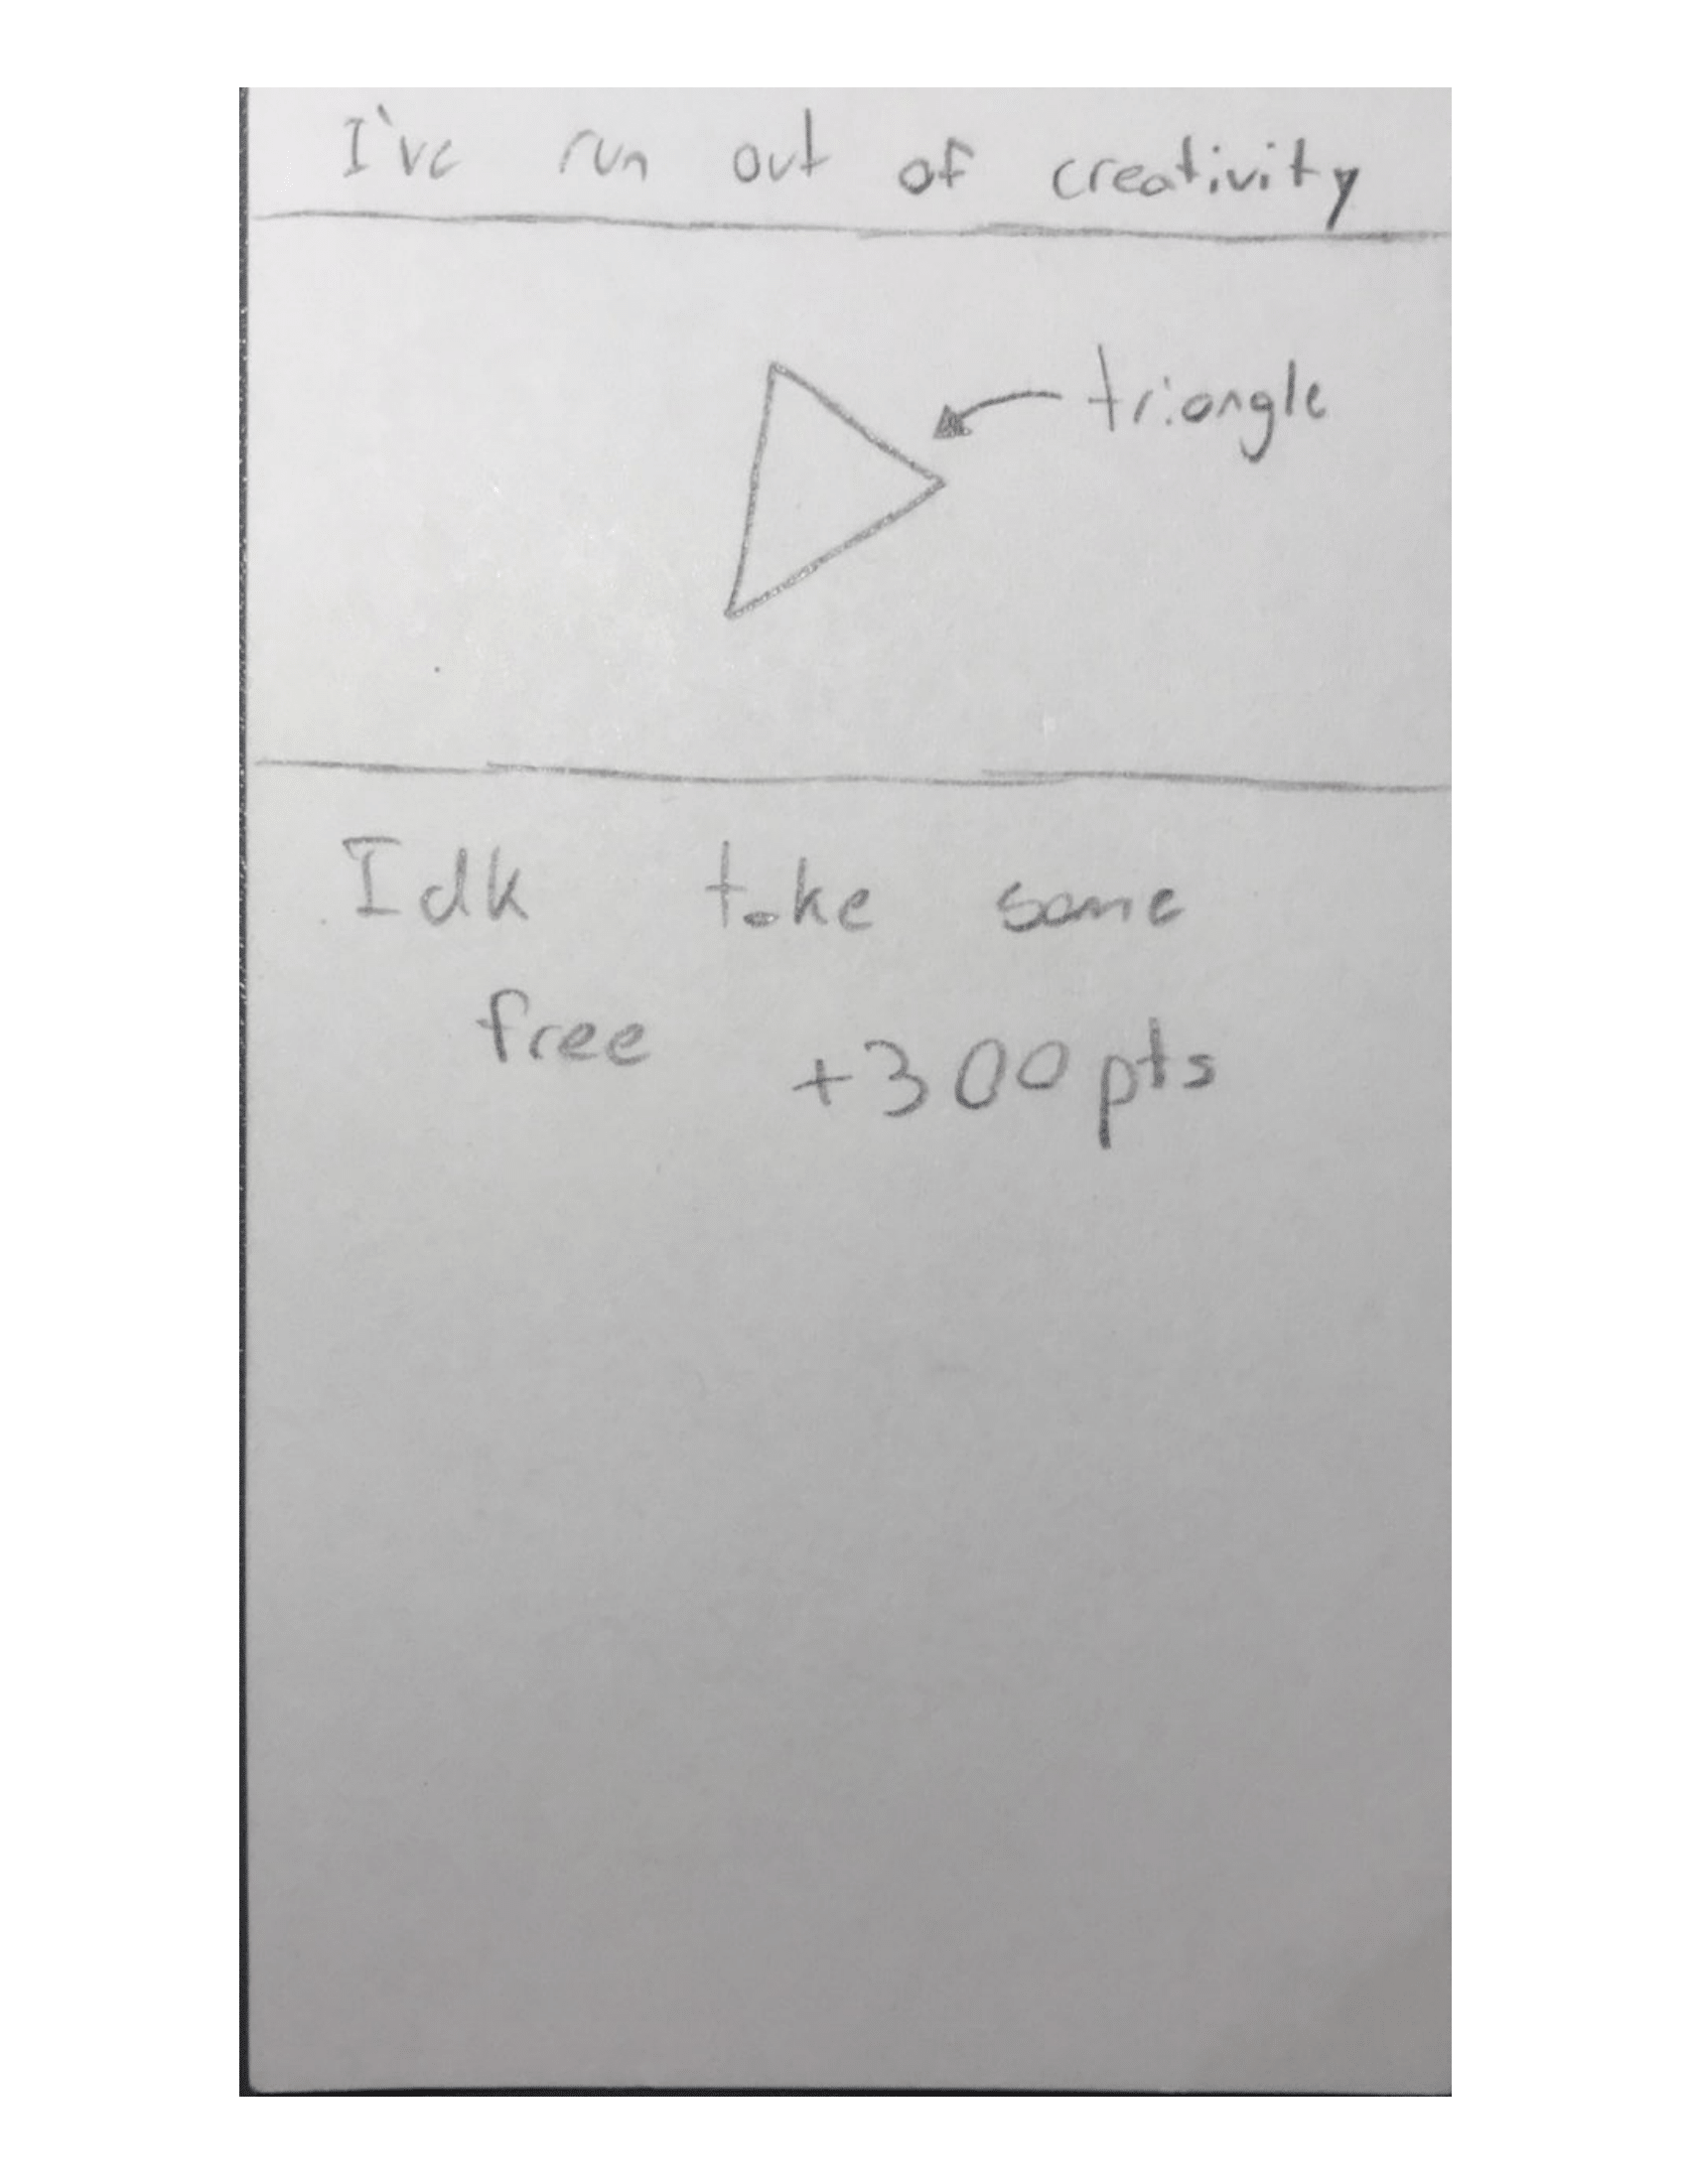 I've run out of creativity
triangle
Idk take some
free +300pts